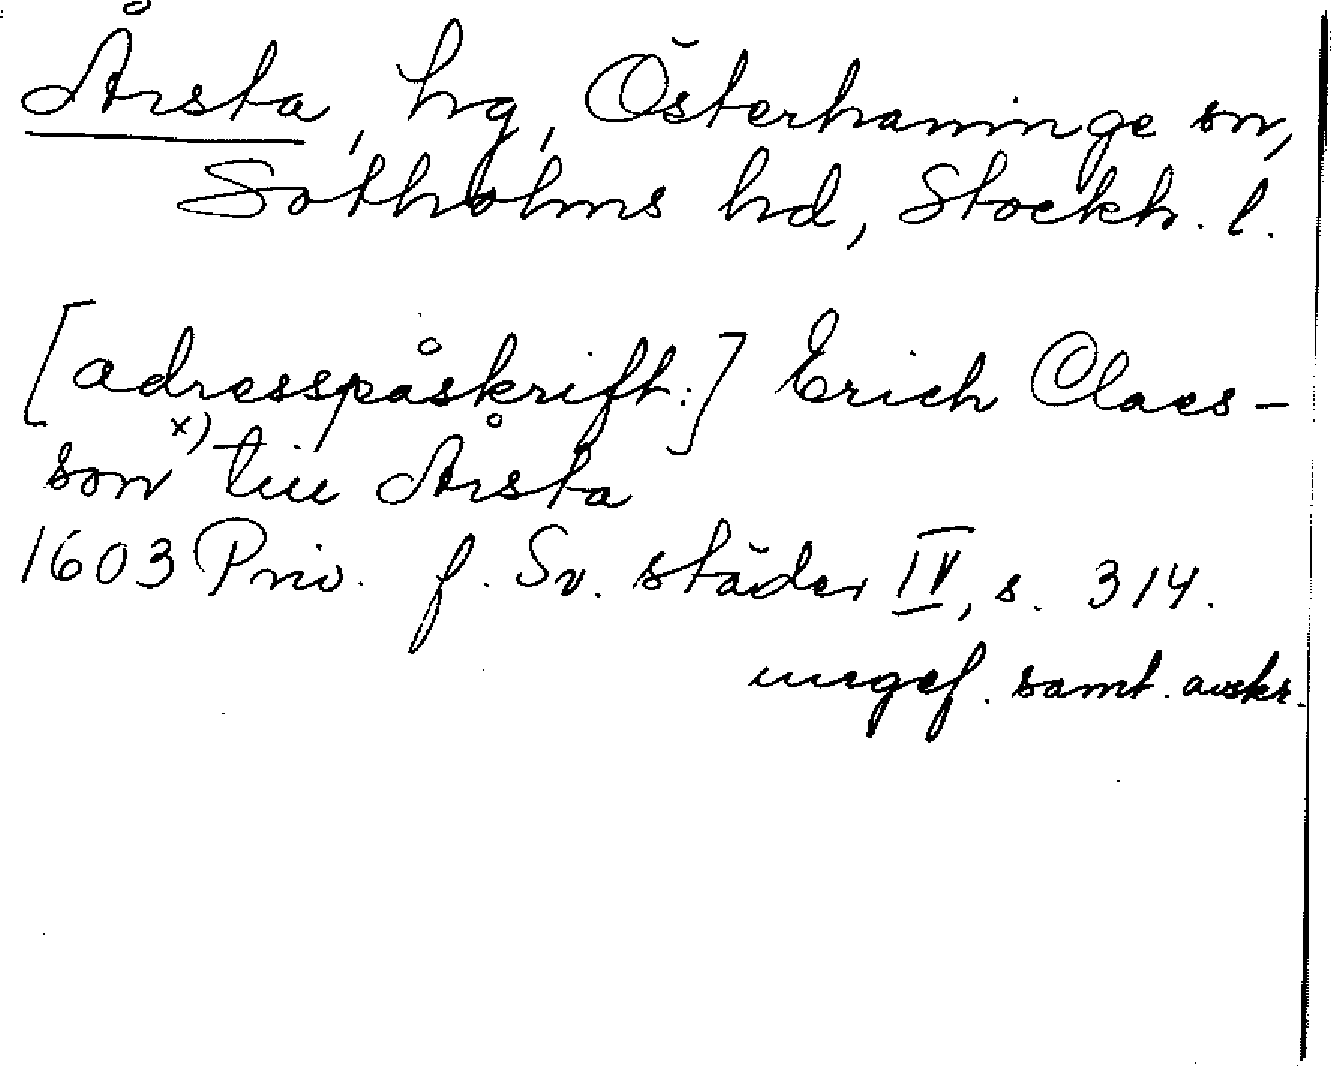 Årsta, hg, Österhaninge sn,
Sotholms hd, Stockh. l.
[adresspåskrift:] Erich Claes-
son x) till Årsta
1603 Priv. f. Sv. städer IV, s. 314.
ungef. samt. avskr.